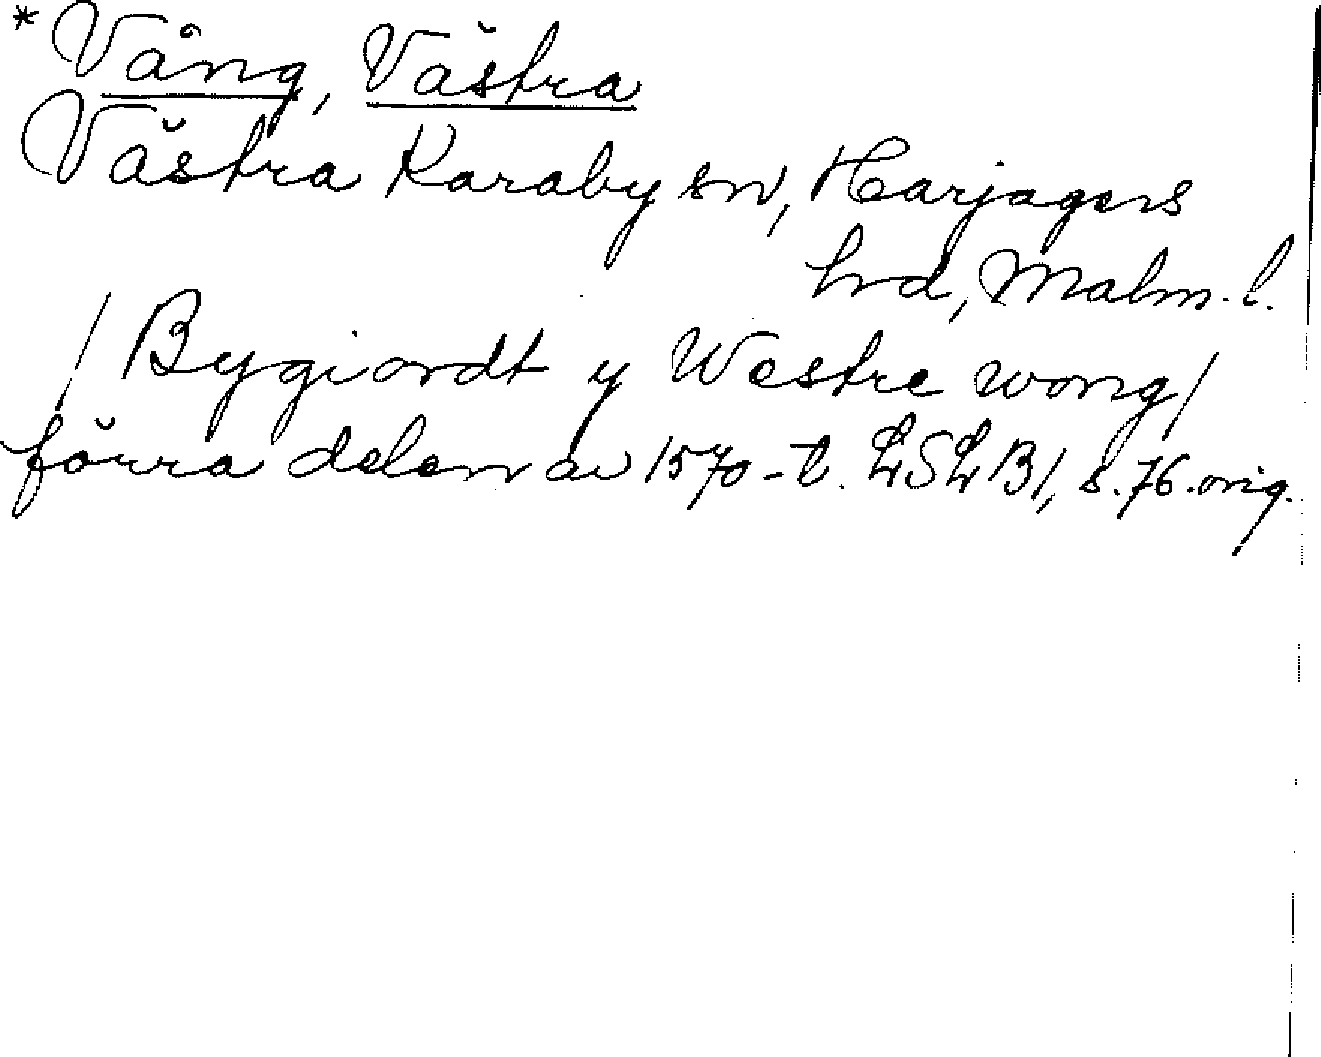 *Vång, Västra
Västra Karaby sn, Harjagers
hrd, Malm. l.
/ Bygiordt y Westre wong/
förra delen av 1570-t. LSLB1, s. 76. orig.